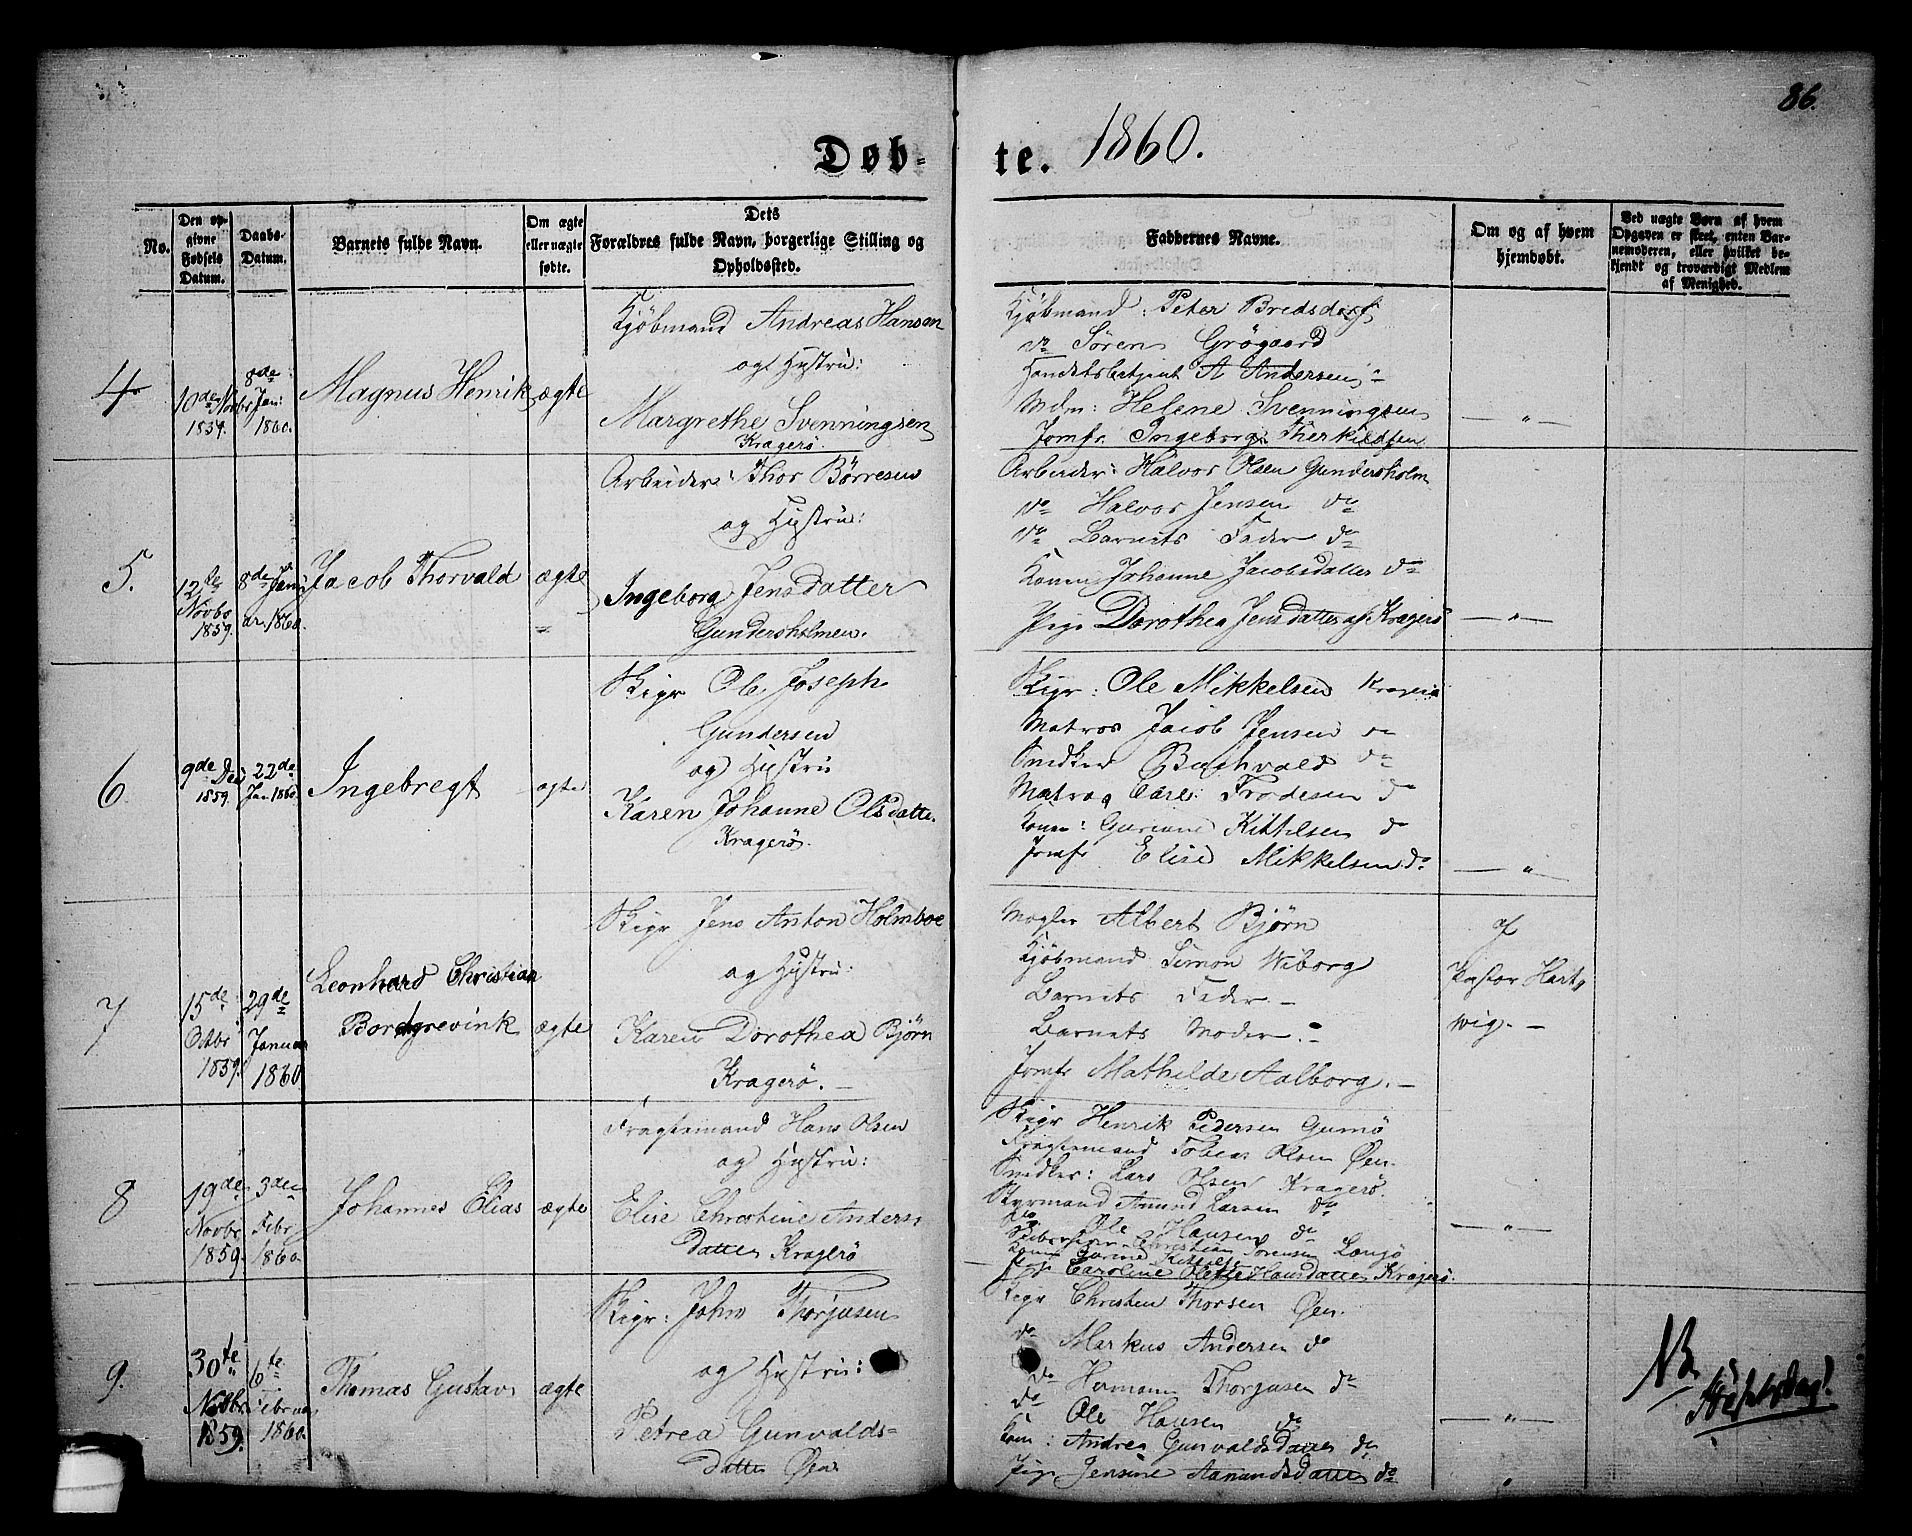 86.
Døb-te. 1860.
No.
Den op-
givne
Fødsels
Datum.
Daabs-
Datum.
Barnets fulde Navn.
Om ægte
eller uægte
fødte.
Dets
Forældres fulde Navn, borgerlige Stilling og
Opholdssted.
Faddernes Navne.
Om og af hvem
hjemdøbt.
Ved uægte Børn af hvem
Opgaven er skeet, enten Bar-
nemoderen, eller hvilket be-
kjendt og troværdigt Medlem
af Menighed.
4
10de Novbr
1859.
8de
Jan:
1860.
Magnus Henrik
ægte
Kjøbmand Andreas Hansen
og Hustru:
Margrethe Svenningsen
Kragerö.
Kjøbmand: Peter Bredsdorf
do Sören Grögaard
A Andersen
Mdm: Helene Svenningsen
Jomfr. Ingeborg Therkildsen
— " —
5.
12te
Novbr
1859.
8de Janu
ar. 1860.
Jacob Thorvald
ægte
Arbeider: Thor Börresen
og Hustru:
Ingeborg Jensdatter
Gundersholmen.
Arbeider: Halvor Olsen Gundersholm
do Halvor Jensen do
do Barnets Fader do
Konen Johanne Jacobsdatter do
Pige Dorothea Jensdatter af Kragerö
— " —
6
9de Dec
1859.
22de
Jan 1860.
Ingebregt
ægte
Skipr Ole Joseph
Gundersen
og Hustru
Karen Johanne Olsdatter
Kragerö.
Skipr: Ole Mikkelsen Kragerö
Matros Jacob Jensen do
Snedker Buchvald do
Matros Carl Frodesen do
Kone: Guriane Kittelsen do
Jomfr Elise Mikkelsen do
— " —
7
15de
Octbr
1859.
29de
Januar
1860
Leonhard Christian
Borchgrevink
ægte
Skipr Jens Anton Holmboe
og Hustru:
Karen Dorothea Bjørn
Kragerö. —
Mægler Albert Bjørn
Kjöbmand Simon Wiborg
Barnets Fader. —
Barnets Moder. —
Jomfr Mathilde Aalborg. —
af
Pastor Hart
wig. —
8
19de
Novbr
1859.
3den
Febr
1860.
Johannes Elias
ægte
Fragtemand Hans Olsen
og Hustru:
Elise Christine Anders
datter Kragerö
Skipr Henrik Pedersen Gumö
Fragtemand Tobias Olsen Øen.
Snedker: Lars Olsen Kragerö.
Styrmand Amund Larsen do
do Ole Hansen do
Christian Sörensen Langö
Kone Gurine Kittelsen
Pige Caroline Olette Hansdatter Kragerö.
— " —
9.
30te
Novbr.
1859.
6te
Februar
1860.
Thomas Gustav
ægte
Skipr: John Thorjusen
og Hustru:
Petrea Gunvalds-
datter Øen
Skipr Christen Thorsen Øen.
do Markus Andersen do
do Hermann Thorjusen do
do Ole Hansen do
Kone: Andrea Gunvaldsdatter do
Pige Jensine Aanundsdatter do
— " —
"
NB